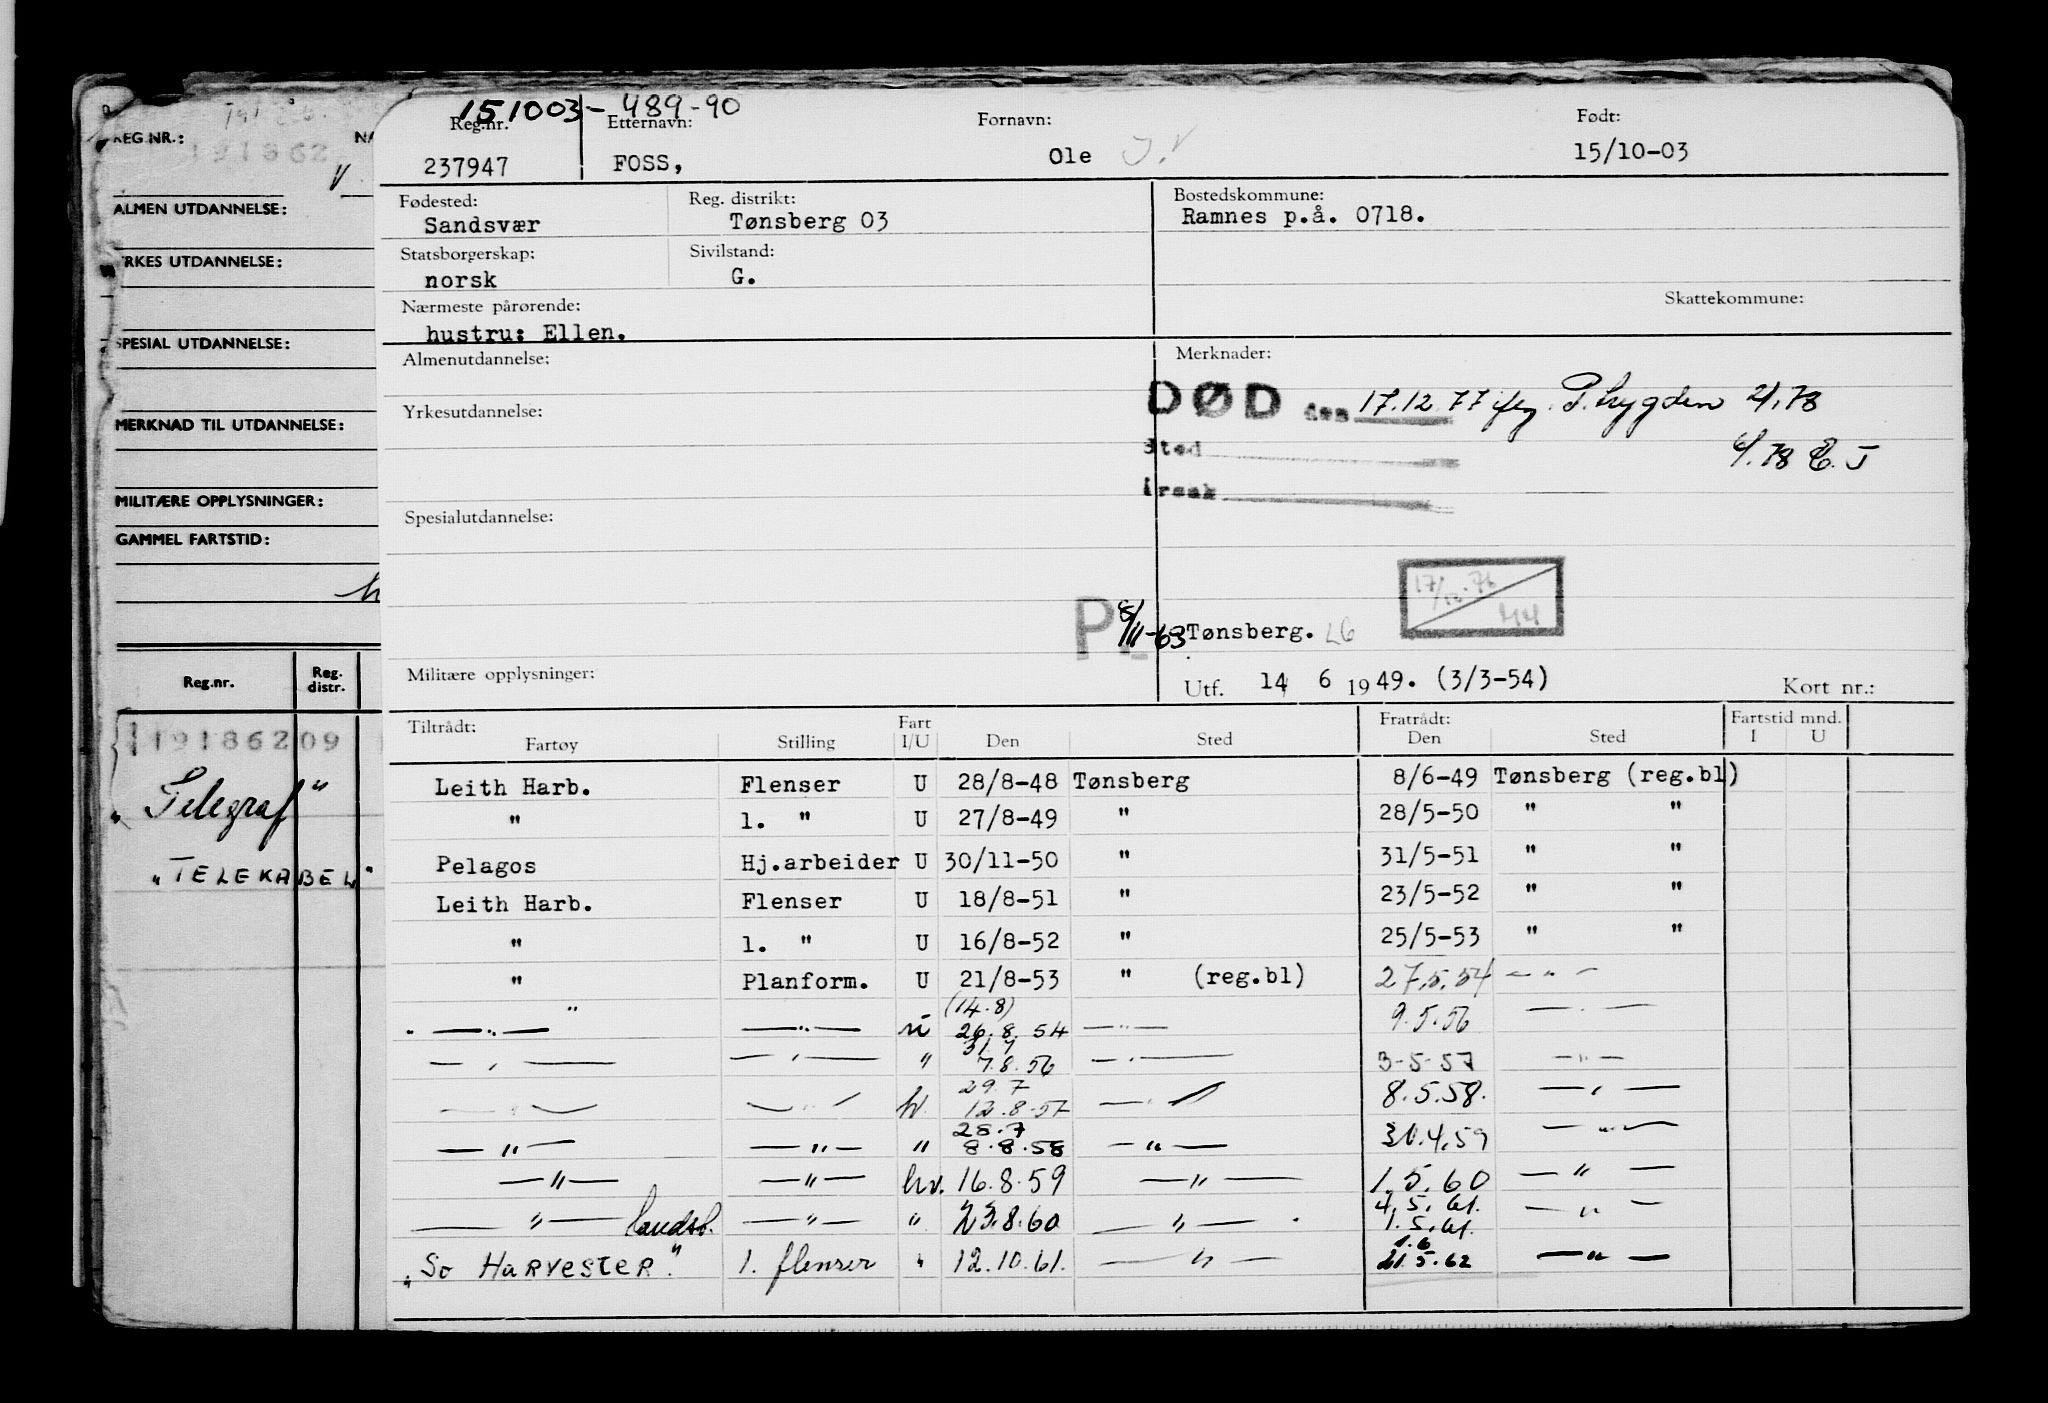 REG NR.:
191862
ALMEN UTDANNELSE:
YRKES UTDANNELSE:
SPESIAL UTDANNELSE:
MERKNAD TIL UTDANNELSE:
MILITÆRE OPPLYSNINGER:
GAMMEL FARTSTID:
Reg.nr. Reg. distr.
191862 09
"Telegraf"
"TELEKABEL"
151003-489-90
Reg.nr. Etternavn: Fornavn: Født:
237947 FOSS, Ole J. 15/10-03
Fødested: Reg. distrikt: Bostedskommune:
Sandsvær Tønsberg 03 Ramnes p.å. 0718.
Statsborgerskap: Sivilstand:
norsk G.
Nærmeste pårørende: Skattekommune:
hustru: Ellen.
Almenutdannelse: Merknader:
DØD den 17.12.77 iflg. P. trygden 2/1.78
Yrkesutdannelse:
Sted 6/1.78 E.J
årsak
Spesialutdannelse:
17/12-76
44
P 8/11-63 Tønsberg. LG
Militære opplysninger: Utf. 14 6 1949. (3/3-54) Kort nr.:
Tiltrådt: Fart Fratrådt: Fartstid mnd.
Fartøy Stilling I/U Den Sted Den Sted I U
Leith Harb. Flenser U 28/8-48 Tønsberg 8/6-49 Tønsberg (reg.bl)
" 1. " U 27/8-49 " 28/5-50 " "
Pelagos Hj.arbeider U 30/11-50 " 31/5-51 " "
Leith Harb. Flenser U 18/8-51 " 23/5-52 " "
" 1. " U 16/8-52 " 25/5-53 " "
" Planform. U 21/8-53 " (reg.bl) 27.5.54 — " —
(14.8)
— " — — " — 26.8.54 — " — 9.5.56 — " —
31.7
— " — — " — " 7.8.56 — " — 3-5-57 — " —
29.7
— " — — " — hv. 12.8-57 — " — 8.5.58. — " —
28.7
— " — — " — " 8.8.58 — " — 30.4.59 — " —
— " — — " — hv. 16.8.59 — " — 1.5.60 — " —
4.5.61.
— " — landst. — " — " 23.8.60 — " — 1.5.61. — " —
1.6
"So HARVESTER." 1. flenser " 12.10.61. — " — 21.5.62 — " —